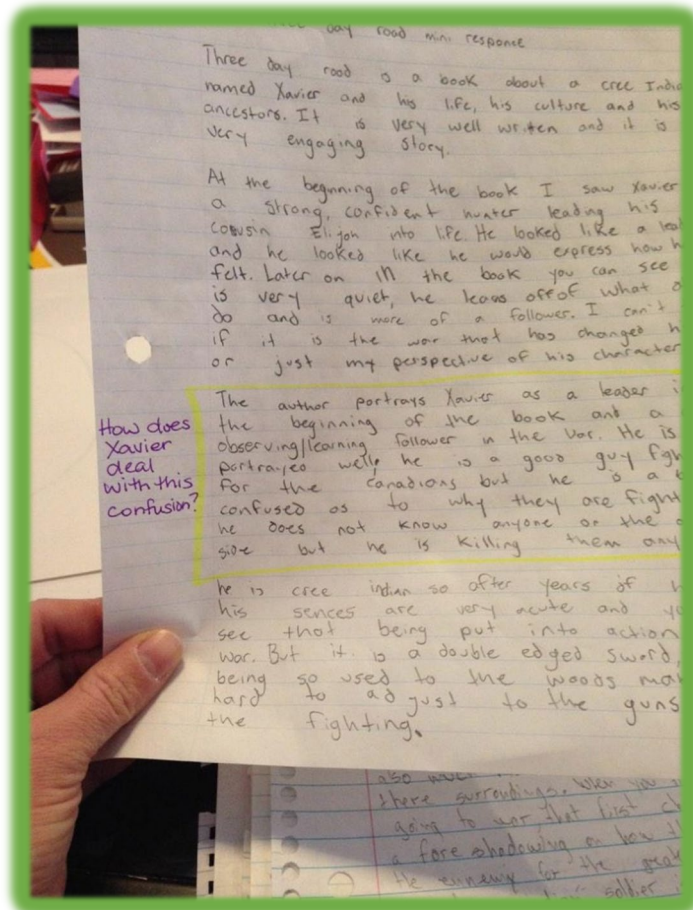 day road mini responce
Three day road is a book about a cree India
named Xavier and his life, his culture and his
ancestors. It is very well writen and it is
very engaging story.
At the beginning of the book I saw Xavier
a strong, confident hunter leading his
cousin Elijah into life. He looked like a lea
and he looked like he would express how h
felt. Later on in the book you can see
is very quiet, he leans off of what
do and is more of a follower. I can't
if it is the war that has changed h
or just my perspective of his character
The author portrays Xavier as a leader i
the beginning of the book and a
observing/learning follower in the war. He is
portrayed well, he is a good guy figh
for the Canadians but he is a
confused as to why they are fight
he does not know anyone on the
side but he is killing them any
he is cree indian so after years of h
his sences are very acute and yo
see that being put into action
war. But it is a double edged sword,
being so used to the woods ma
hard to adjust to the guns
the fighting.
How does
Xavier
deal
with this
confusion?
also
there surroundings. When you
going to war that first ch
a fore shadowing on how th
the ennemy for the grea
soldier i